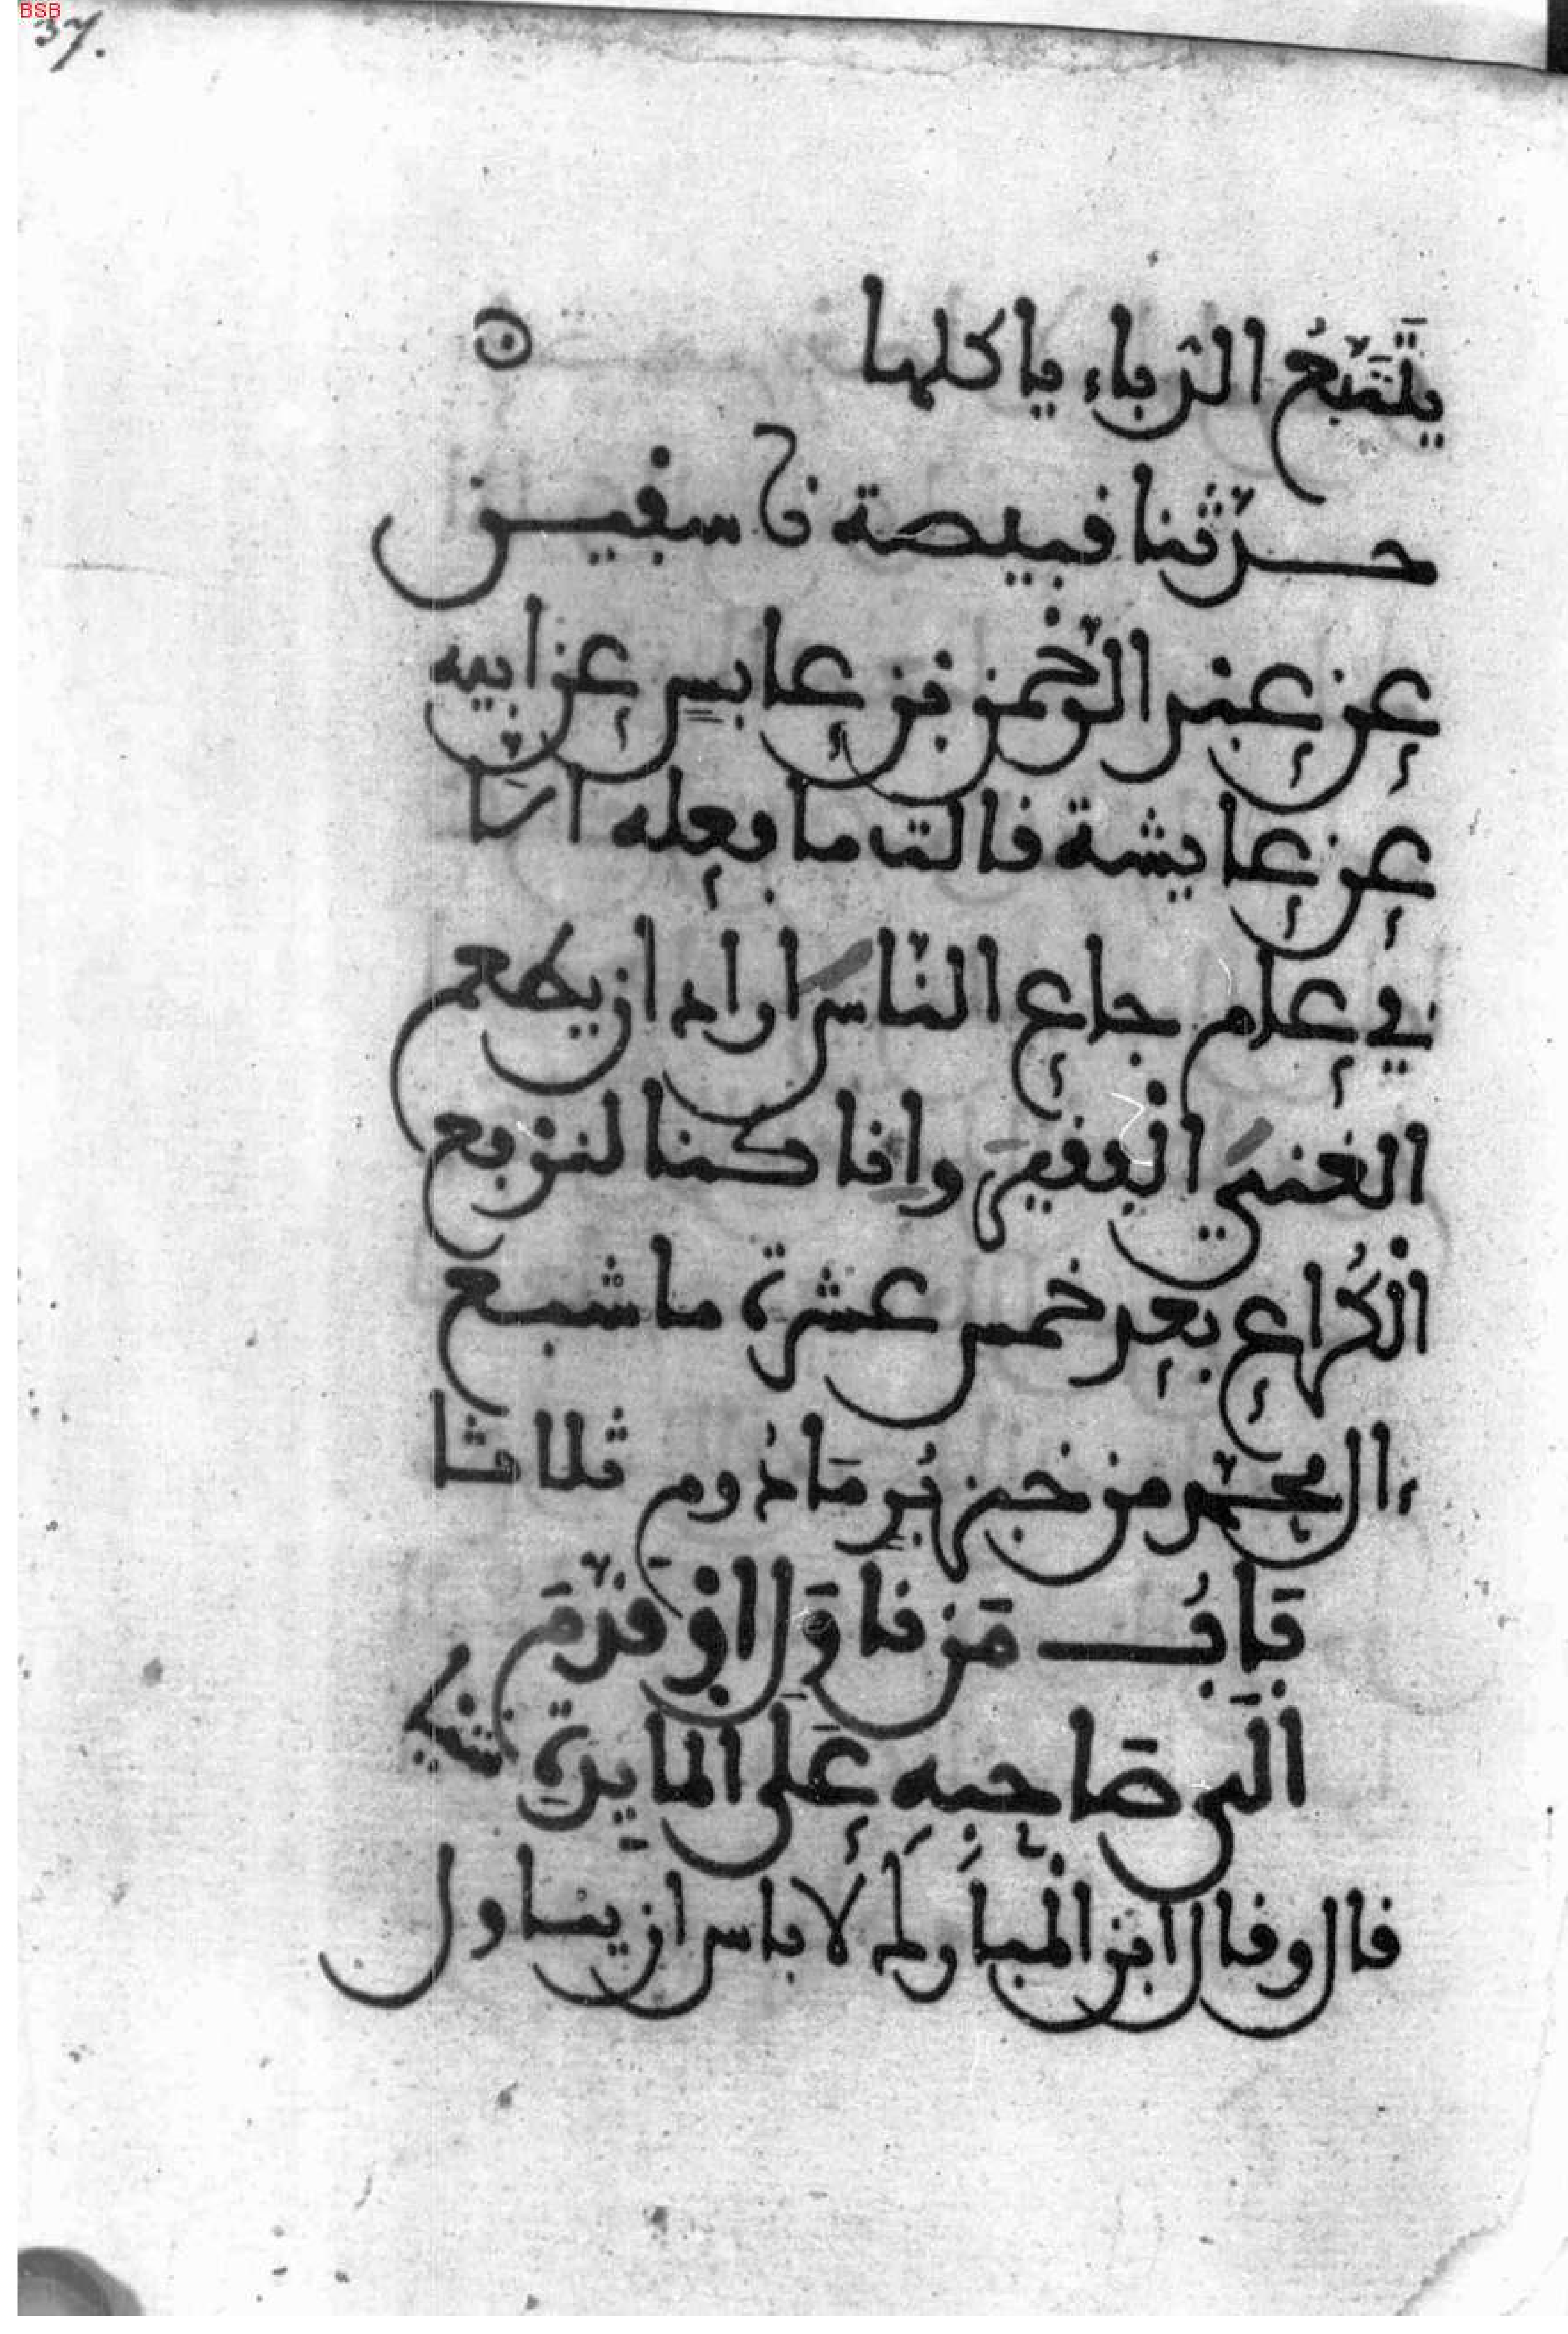 BSB
37.
يَتَتَبَّعُ الدباء ياكلها
حدّثنا قبيصة نا سفين
عن عبد الرّحمن بن عابس عن ابيه
عن عايشة قالت ما فعله الّا
في عام جاع النّاس اراد ان يطعم
الغني الفقير وان كنا لنرفع
الْكُراع بعد خمس عشرة ما شبع
ءال محمّد من خبز بُرٍّ مَادُوم ثلاثا
بَابُ مَن نَاوَلَ اوْ قَدّمَ
الَى صَاحِبِهِ عَلَى المايدةِ شيا
قال وقال ابن الْمباركِ لا باس ان يناول